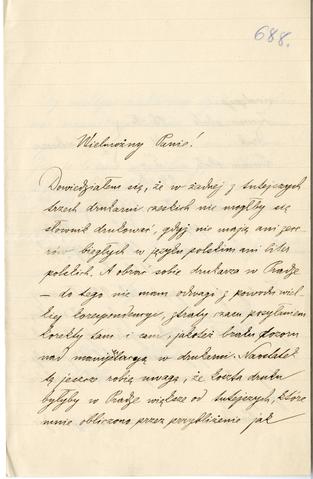 688.
Wielmożny Panie!
Dowiedziałem się, że w żadnej z tutejszych
trzech drukarni czeskich nie mógłby się
słownik drukować, gdyż nie mają ani zece-
rów biegłych w języku polskim ani liter
polskich. A obrać sobie drukarza w Pradze
– do tego nie mam odwagi z powodu wiel-
kiej korespondencyi, straty czasu posyłaniem
korekty tam i sem, jakoteż braku dozoru
nad manipulacyą w drukarni. Naostatek
tę jeszcze robię uwagę, że koszta druku
byłyby w Pradze większe od tutejszych, które
mnie obliczono przez przybliżenie jak